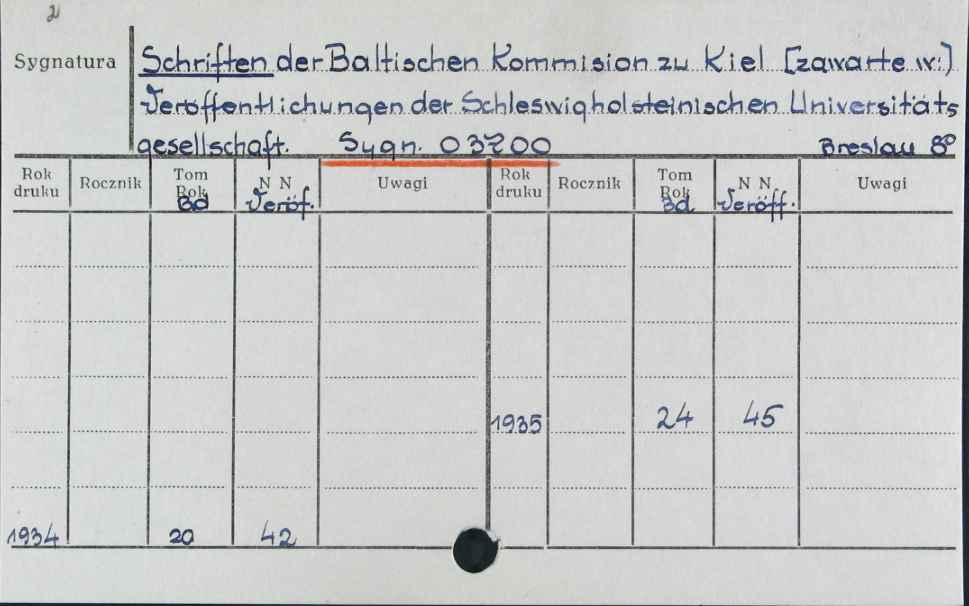 2
Sygnatura
Schriften der Baltischen Kommision zu Kiel [zawarte w:]
Veröffentlichungen der Schleswigholsteinischen Universitäts
gesellschaft. Sygn. 03700 Breslau 8°
Rok druku Rocznik Tom Rok Bd N N Veröf. Uwagi Rok druku Rocznik Tom Rok Bd. N N Veröff. Uwagi
1935 24 45
1934 20 42